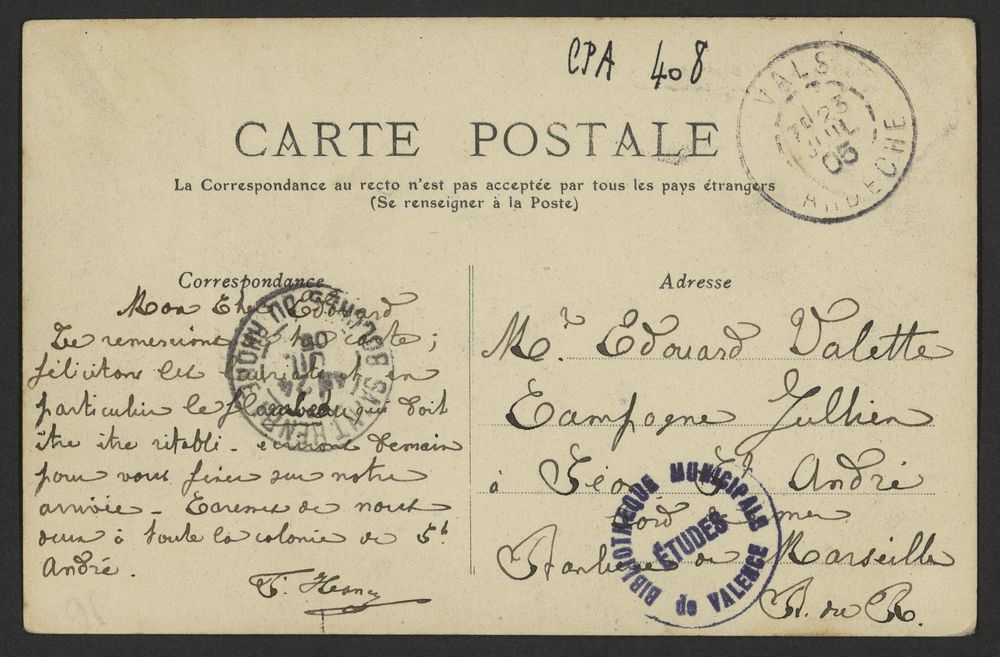 CPA 408
VALS
ARDECHE
23
JUIL
05
CARTE POSTALE
La Correspondance au recto n'est pas acceptée par tous les pays étrangers
(Se renseigner à la Poste)
Correspondance
Mon Cher Edouard
Te remercions de ta carte ;
félicitons les et en
particulier le Flambeau que doit
être être rétabli - écrirons demain
pour vous fixer sur notre
arrivée - Caresses de nous
deux à toute la colonie de St
André.
SAINT HENRI
BOUCHES DU RHONE
24
JUIL
05
Adresse
Mr. Edouard Valette
Campagne Jullien
à St André
bord de mer
Banlieue de Marseille
B. du R.
BIBLIOTHEQUE MUNICIPALE
ÉTUDES
de VALENCE